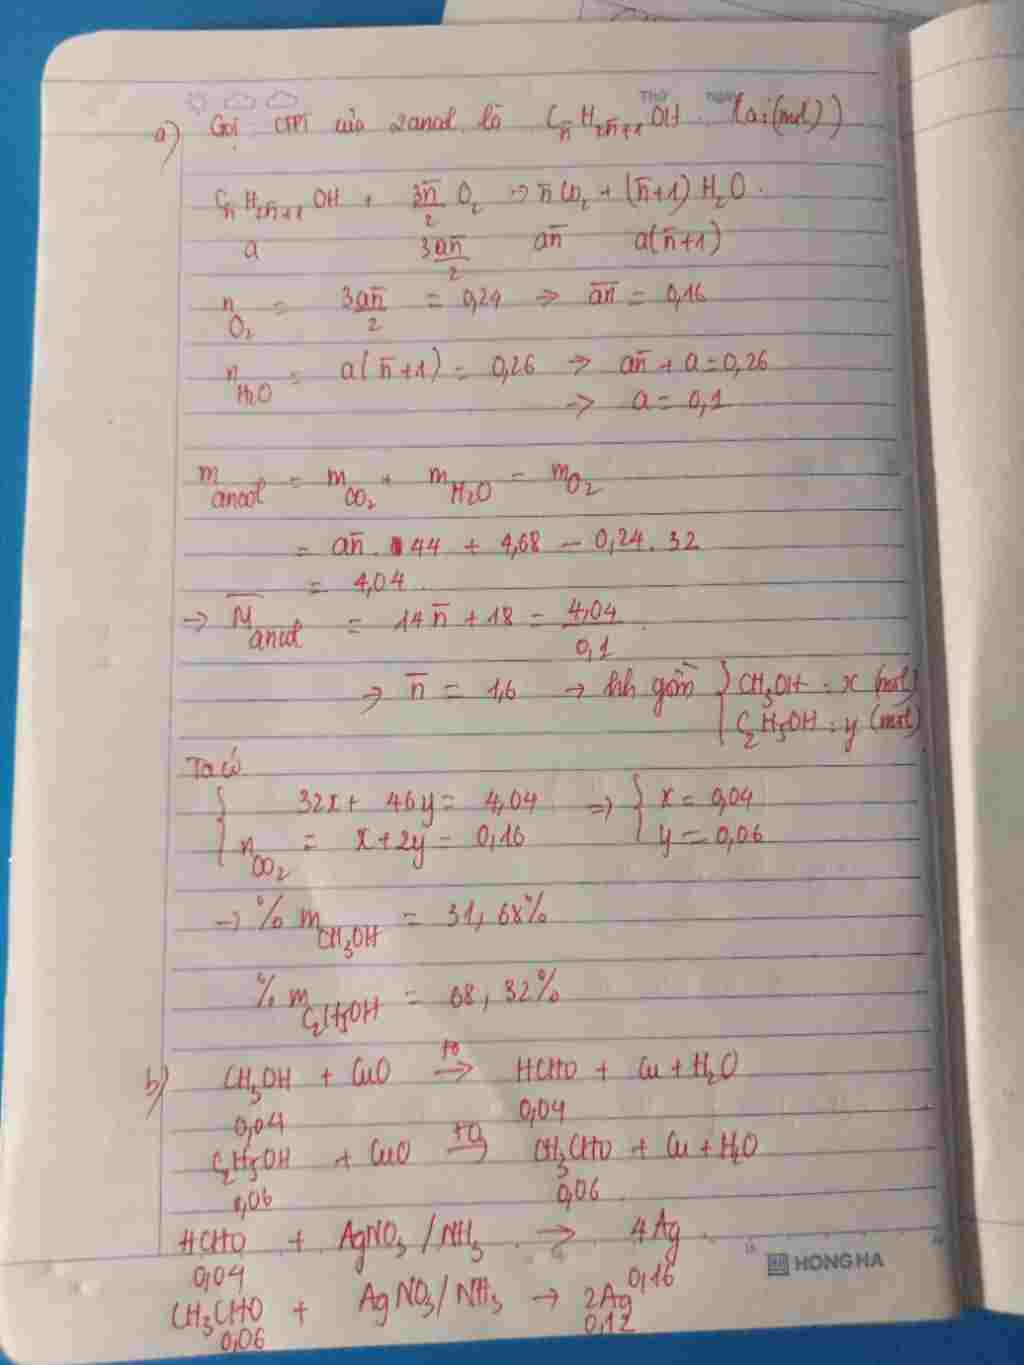 a) Gọi CTPT của 2 ancol là C_n̄H_2n̄+1OH (a:(mol))
C_n̄H_2n̄+1OH + 3n̄/2 O₂ → n̄CO₂ + (n̄+1) H₂O.
a 3an̄/2 an̄ a(n̄+1)
n_O₂ = 3an̄/2 = 0,24 ⇒ an̄ = 0,16
n_H₂O = a(n̄+1) = 0,26 ⇒ an̄ + a = 0,26
⇒ a = 0,1
m_ancol = m_CO₂ + m_H₂O - m_O₂
= an̄ . 44 + 4,68 - 0,24.32
= 4,04
→ M̄_ancol = 14n̄ + 18 = 4,04/0,1
→ n̄ = 1,6 → hh gồm { CH₃OH : x (mol)
C₂H₅OH : y (mol)
Ta có
{ 32x + 46y = 4,04 ⇒ { x = 0,04
n_CO₂ = x + 2y = 0,16 y = 0,06
→ % m_CH₃OH = 31,68%
% m_C₂H₅OH = 68,32%
b) CH₃OH + CuO →(t⁰) HCHO + Cu + H₂O
0,04 0,04
C₂H₅OH + CuO →(t⁰) CH₃CHO + Cu + H₂O
0,06 0,06
HCHO + AgNO₃/NH₃ → 4Ag
0,04 0,16
CH₃CHO + AgNO₃/NH₃ → 2Ag
0,06 0,12
HONG HA